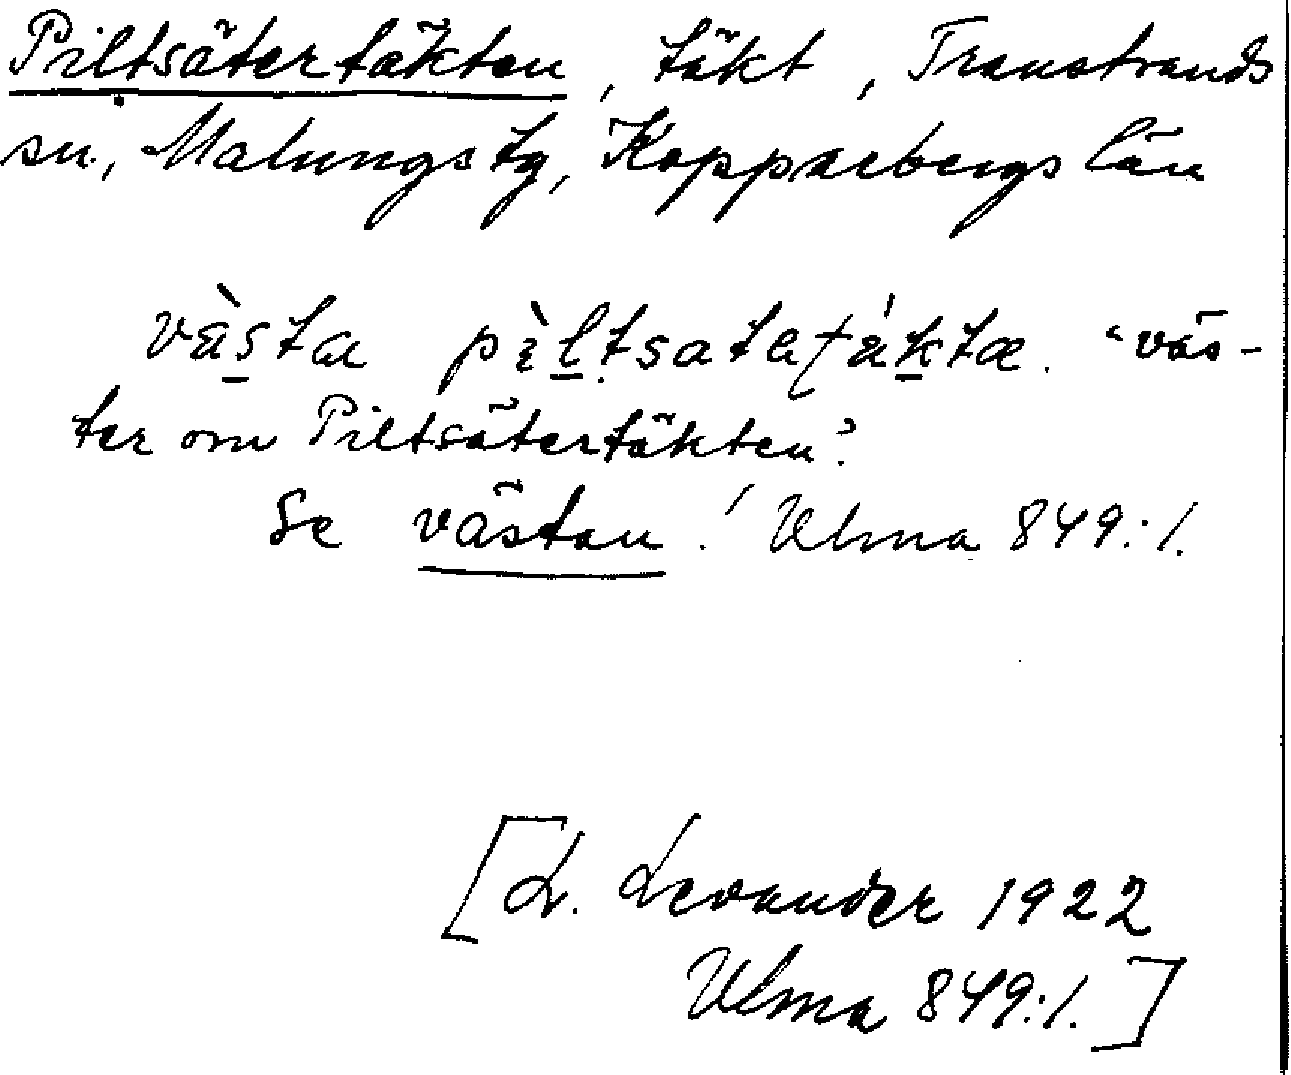 Piltsätertäkten, täkt, Transtrands
sn., Malungs tg, Kopparbergs län
väs̱ta pìḻtsatatáḵtæ. "väs-
ter om Piltsätertäkten".
Se västan! Ulma 849:1.
[L. Levander 1922
Ulma 849:1.]